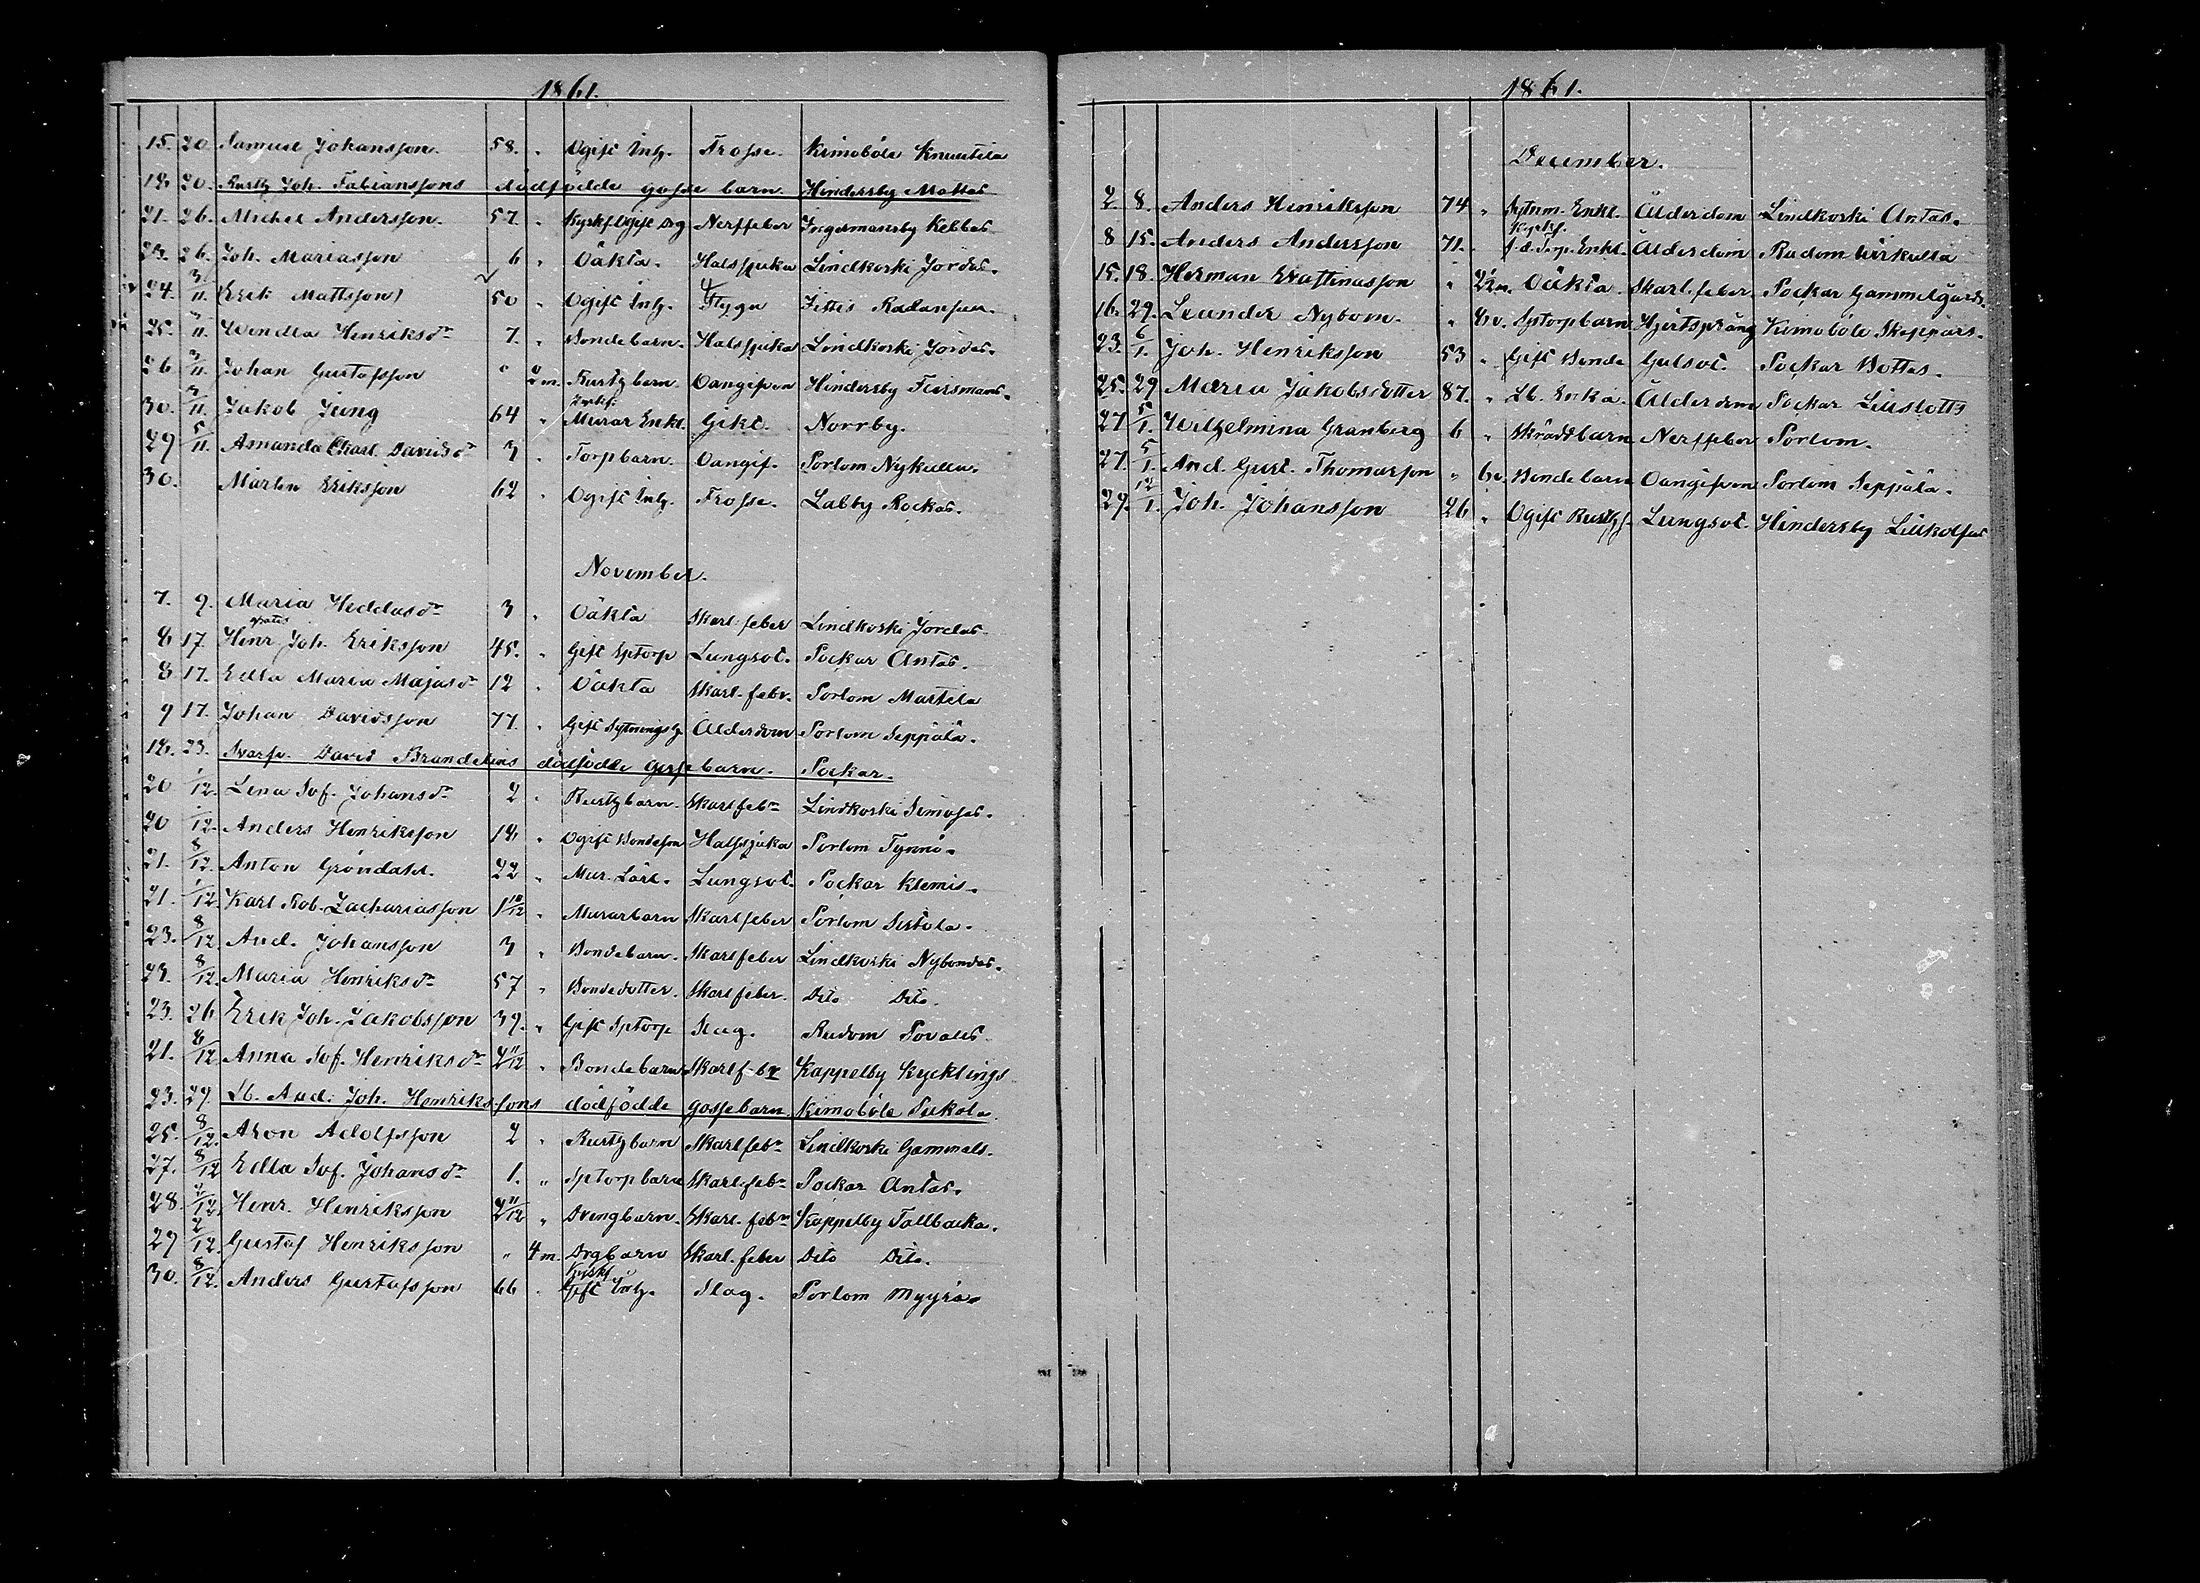 1861.
15. 20. Samuel Johansson. 58. " Ogift Inh. Frossa. Kimoböle Knuutila
18. 20. Rusth. Joh. Fabianssons dödfödde gosse barn. Hindersby Mattas
21. 26. Michel Andersson. 57 " Kyrkf. Ogift drg Nerffeber Ingermansby Kebbas
23. 26. Joh. Mariasson 6 " Oäkta. Halssjuka Lindkoski Jordas.
24. 3/11. Erik Mattsson 50 " Ogift Inh. Flygn Jittis
25. 3/11. Wendla Henriksdr 7. " Bondebarn. Halssjuka Lindkoski Jordas.
26 3/11. Johan Gustafsson " 2 m. Rusth barn Oangifven Hindersby
30. 3/11. Jakob Jung 64 " Kyrkf. Murar Enkl. Gikt. Norrby.
29 5/11. Amanda Charl. Davidsdr 3 " Torpbarn. Oangif. Porlom Nykulla.
30. Mårten Eriksson 62 " Ogift Inh. Frossa. Labby Rockas.
November.
7. 9. Maria Heddasdr 3 " Oäkta Skarl. feber Lindkoski Jordas.
gratis
8 17. Henr. Joh. Eriksson 45. " Gift Sptorp Lungsot. Pockar Antas.
8 17. Edla Maria Majasdr 12 " Oäkta Skarl. febr. Porlom Martila
9 17. Johan Davidsson 77. " Gift Sytningsh. Ålderdom Porlom Seppälä.
18. 23. Svarfv. David Brandelins dödfödde gossebarn. Pockar.
20 1/12. Lena Sof. Johansdr 2 " Rusthbarn. Skarlfebr Lindkoski Simosas.
20 1/12. Anders Henriksson 18 " Ogift Bondeson Halssjuka Porlom Tynni.
21. 8/12. Anton Gröndahl. 22 " Mur. Lärl. Lungsot. Pockar Klemis.
21. 1/12. Karl Rob. Zachariasson 1 10/12 " Murarbarn Skarlfeber Porlom Sistola.
23. 8/12. And. Johansson 3 " Bondebarn. Skarlfeber Lindkoski Nybondas.
23. 8/12. Maria Henriksdr 57 " Bondedotter. Skarlfeber. Dito Dito.
23. 26. Erik Joh. Jakobsson 39. " Gift Sptorp Slag. Rudom
21. 8/12 Anna Sof. Henriksdr 2 11/12 " Bondebarn Skarlfebr Kappelby Kycklings
23. 29. Lb. And. Joh. Henrikssons dödfödde gossebarn. Kimoböle Sukola.
25. 8/12. Aron Adolfsson 2 " Rusthbarn Skarlfebr Lindkoski Gammels.
27. 8/12 Edla Sof. Johansdr 1. " Sptorpbarn Skarl. febr Pockar Antas.
28. 2/12. Henr. Henriksson 2 11/12 " Drengbarn. Skarl. febr Kappelby Tallbacka.
29 2/12. Gustaf Henriksson " 4 m. Drgbarn Skarl. feber Dito Dito.
30. 8/12. Anders Gustafsson 66 " Kyrkf. Gift Inh. Slag. Porlom Myyrä.
1861.
December.
2. 8. Anders Henriksson 74 " Sytnm. Enkl. Ålderdom Lindkoski Antas.
8 15. Anders Andersson 71. " Kyrkf. f.d. Torp. Enkl. Ålderdom Rudom Wirkulla
15. 18. Herman Ewastinasson " 2 1/2 m. Oäkta. Skarl. feber. Pockar Gammelgårds.
16. 29. Leander Nybom. " 8 v. Sptorpbarn Hjertsprång Kimoböle Skeppars.
23. 6/1. Joh. Henriksson 53 " Gift Bonde Gulsot. Pockar Bottas.
25. 29 Maria Jakobsdotter 87. " Lb. Enka. Ålderdom Pockar Lillslotts
27 5/1. Wilhelmina Granberg 6 " Skräddbarn Nerffeber Porlom.
27. 5/1. And. Gust. Thomasson " 6 v. Bondebarn Oangifven Porlom Seppälä.
29. 12/1. Joh. Johansson 26 " Ogift Rusth. Lungsot. Hindersby Lillkolfas